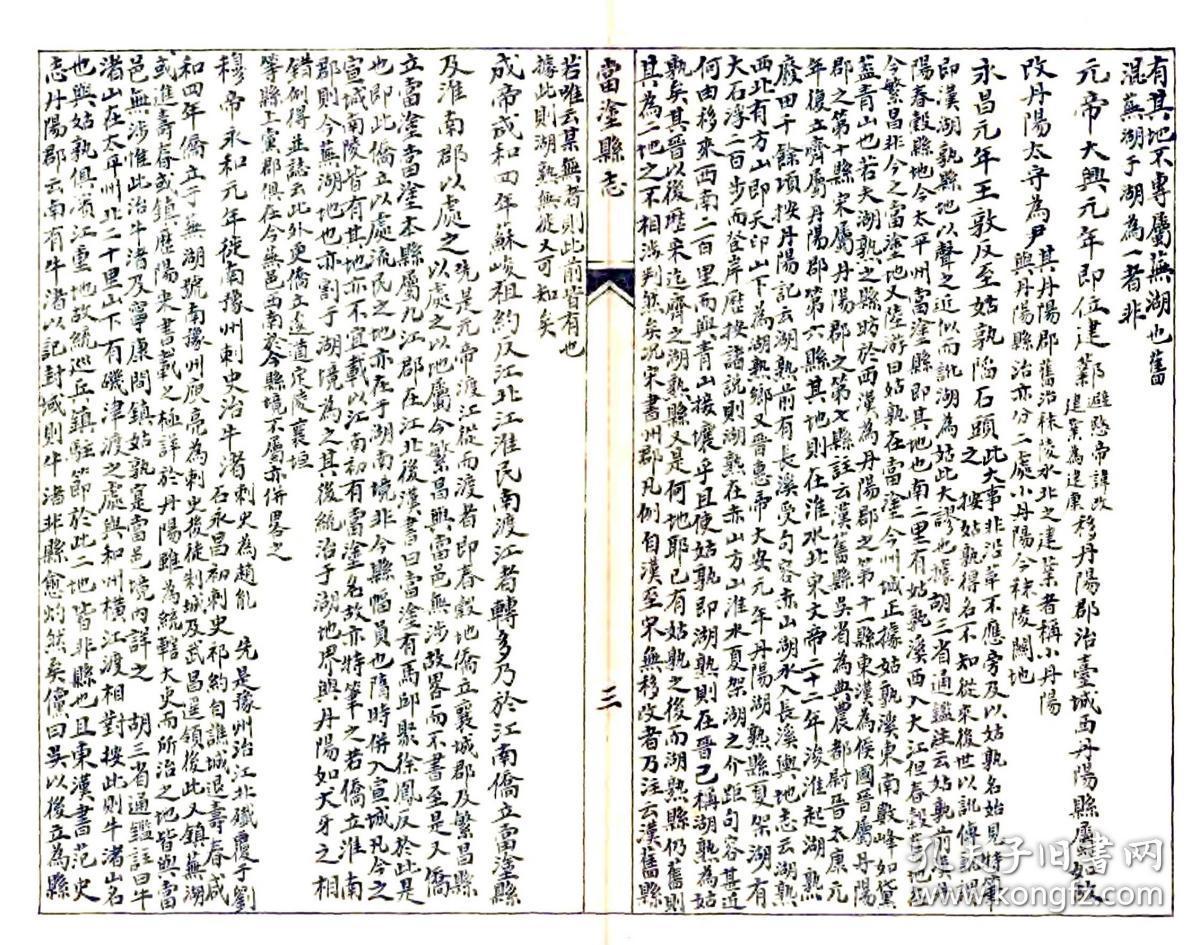 有其地不專屬蕪湖也舊
混蕪湖于湖為一者非
元帝大興元年即位建鄴避愍帝諱改建業為建康移丹陽郡治臺城西丹陽縣屬如故
改丹陽太守為尹其丹陽郡舊治秣陵水北之建業者稱小丹陽與丹陽縣治亦分二處小丹陽今秣陵關地
永昌元年王敦反至姑孰陷石頭此大事非沿革不應旁及以姑孰名始見特筆之按姑孰得名不知從來後世以訛傳訛
即漢湖孰縣地以聲之近似而訛湖為姑此大謬也據胡三省通鑑注云姑孰前吳丹
陽春穀縣地今太平州當塗縣即其地也南二里有姑孰溪西入大江但春穀舊地
今繁昌非今之當塗地又陸游曰姑孰在當塗今州城正據姑孰溪東南數峰如黛
蓋青山也若夫湖孰之縣昉於西漢為丹陽郡之第十一縣東漢為侯國晉屬丹陽
郡之第十縣宋屬丹陽郡之第七縣註云漢舊縣吳省為典農都尉晉太康元
年復立齊屬丹陽郡第六縣其地則在淮水北宋文帝二十二年浚淮起湖熟
廢田千餘頃按丹陽記云湖熟前有長溪受句容赤山湖水入長溪輿地志云湖熟
西北有方山即天印山下為湖熟鄉又晉惠帝大安元年丹陽湖熟縣夏架湖有
大石浮二百步而登岸歷按諸說則湖熟在赤山方山淮水夏架湖之介距句容甚近
何由移來西南二百里而與青山接壤乎且使姑孰即湖熟則在晉已稱湖熟為姑
孰矣其晉以後歷宋迄齊之湖熟縣又是何地耶已有姑孰之後而湖熟縣仍舊則
其為二地之不相涉判然矣況宋書州郡凡例自漢至宋無移改者乃注云漢舊縣
當塗縣志
三
若唯云某無者則此前皆有也
據此則湖熟無從又可知矣
成帝咸和四年蘇峻祖約反江北江淮民南渡江者轉多乃於江南僑立當塗縣
及淮南郡以處之先是元帝渡江從而渡者即春穀地僑立襄城郡及繁昌縣以處之以地屬今繁昌與當邑無涉故畧而不書至是又僑
立當塗當塗本縣屬九江郡在江北後漢書曰當塗有馬邱聚徐鳳反於此是
也即此僑立以處流民之地亦在于湖南境非今縣幅員也隋時併入宣城凡今之
宣城南陵皆有其地亦不宜載以江南初有當塗名故亦特筆之若僑立淮南
郡則今蕪湖地也亦割于湖境為之其後統治于湖地界與丹陽如犬牙之相
錯例得並誌云此外更僑立逡遒定陵襄垣
等縣上黨郡俱在今蕪邑西南於今縣境不屬亦併畧之
穆帝永和元年徙南豫州刺史治牛渚刺史為趙胤 先是豫州治江北殲覆于劉石永昌初刺史祁約自譙城退壽春咸
和四年僑立于蕪湖號南豫州庾亮為刺史後徙制城及武昌遥領後此又鎮蕪湖
或進壽春或鎮歷陽宋書載之極詳於丹陽雖為統轄大史而所治之地皆與當
邑無涉惟此治牛渚及寧康間鎮姑孰寔當邑境內詳之 胡三省通鑑註曰牛
渚山在太平州北二十里山下有磯津渡之處與和州橫江渡相對按此則牛渚山名
也與姑孰俱濱江重地故統巡丘鎮駐節於此二地皆非縣也且東漢書范史
志丹陽郡云南有牛渚以記封域則牛渚非縣愈灼然矣儻曰吳以後立為縣
孔夫子旧书网
www.kongfz.com